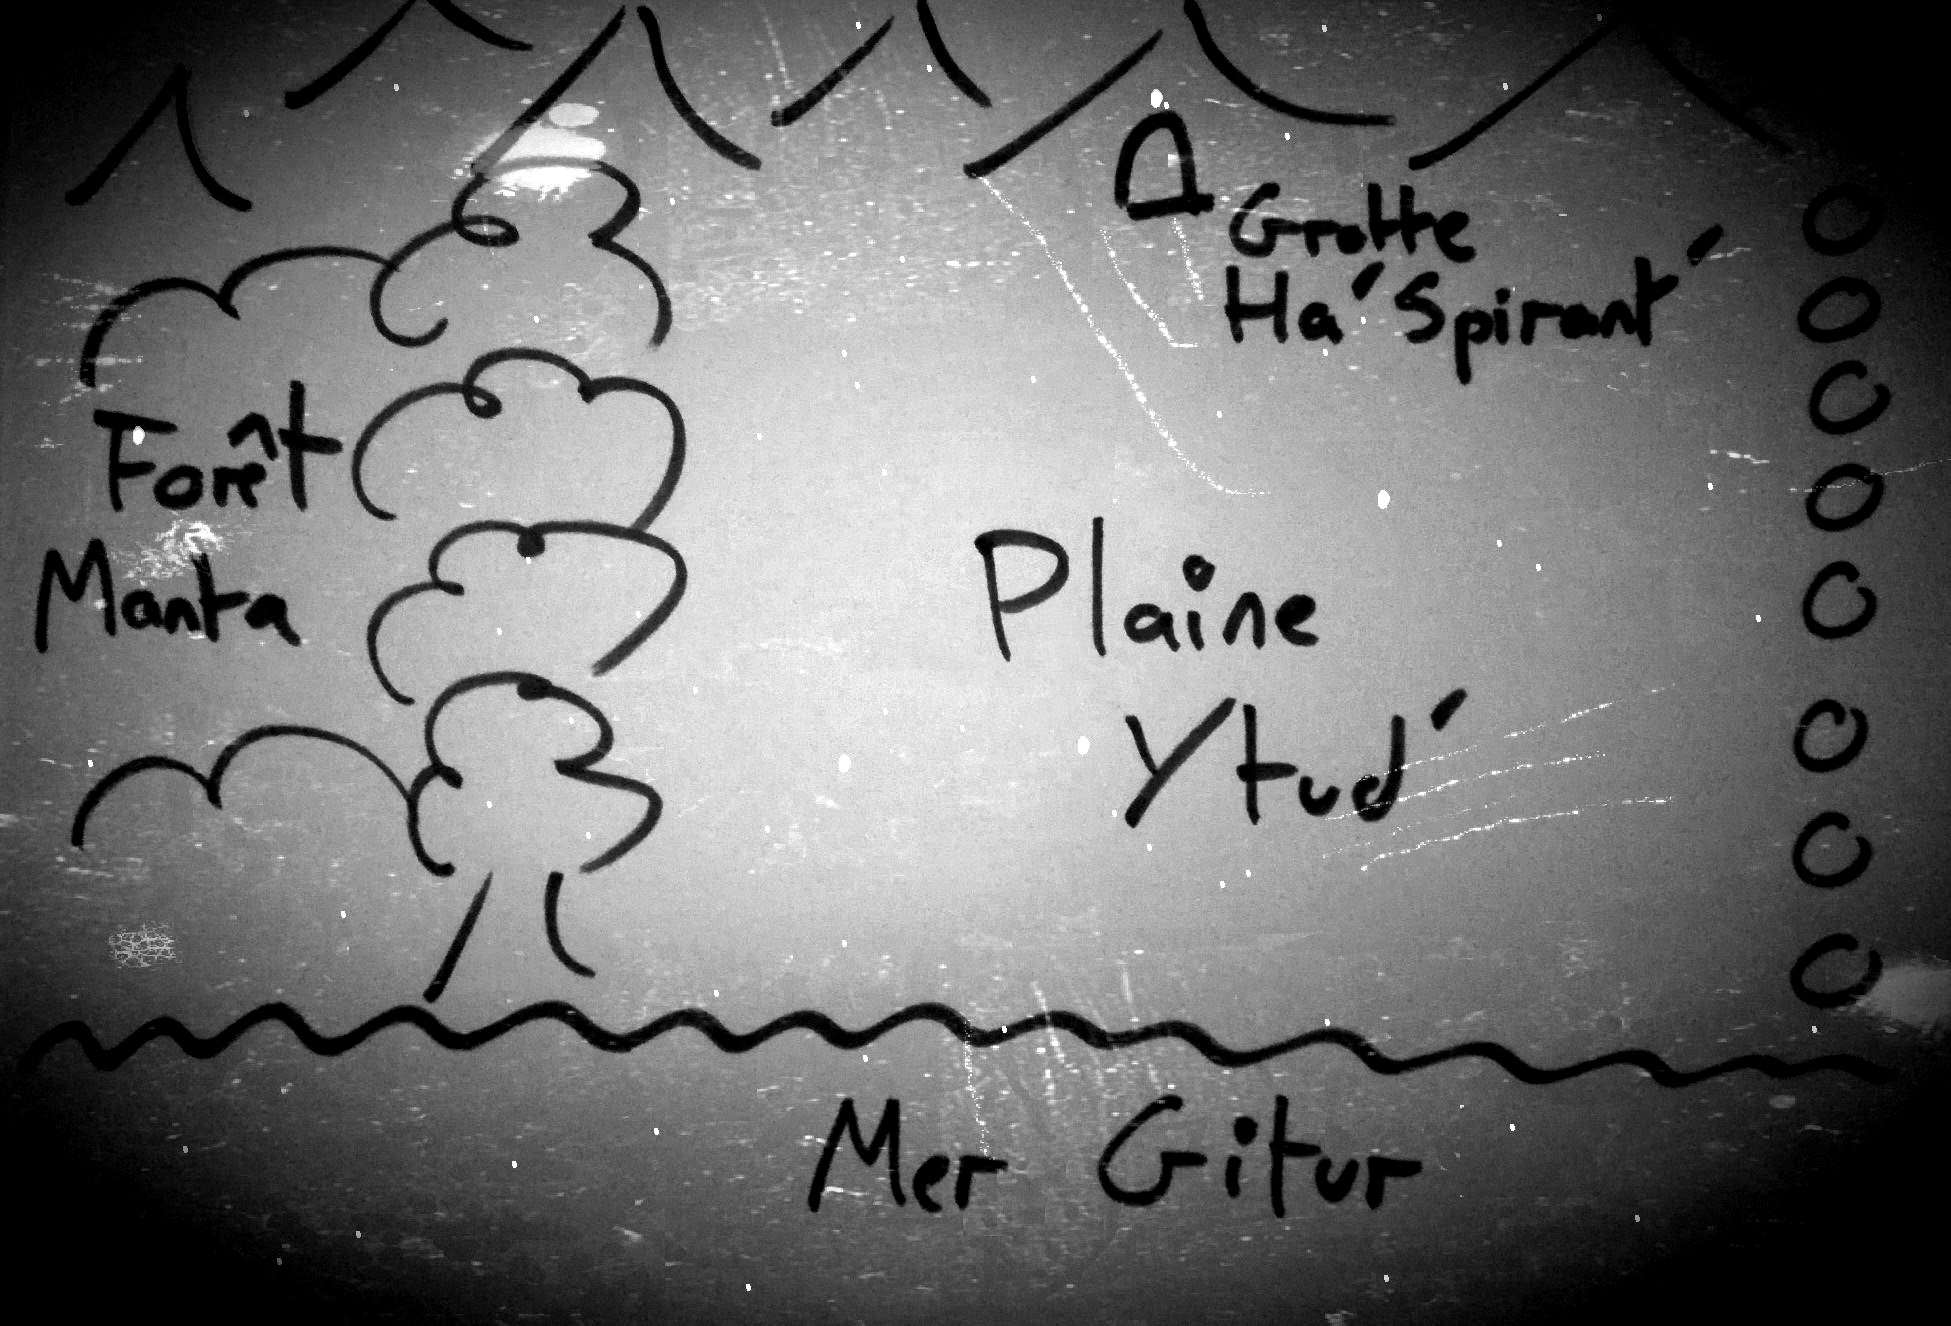 Grotte
Ha'Spirant'
Forêt
Manta
Plaine
Ytud'
Mer Gitur